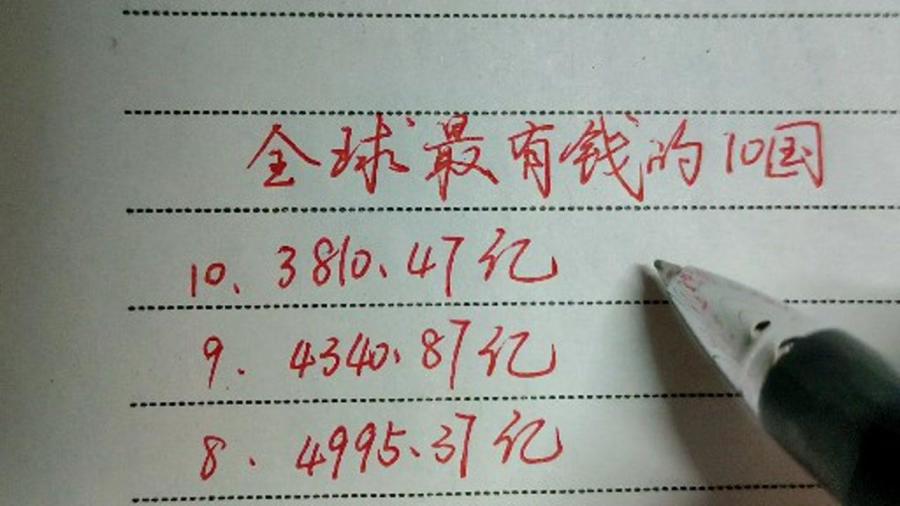 全球最有钱的10国
10、3810.47亿
9.4340.87亿
8.4995.37亿